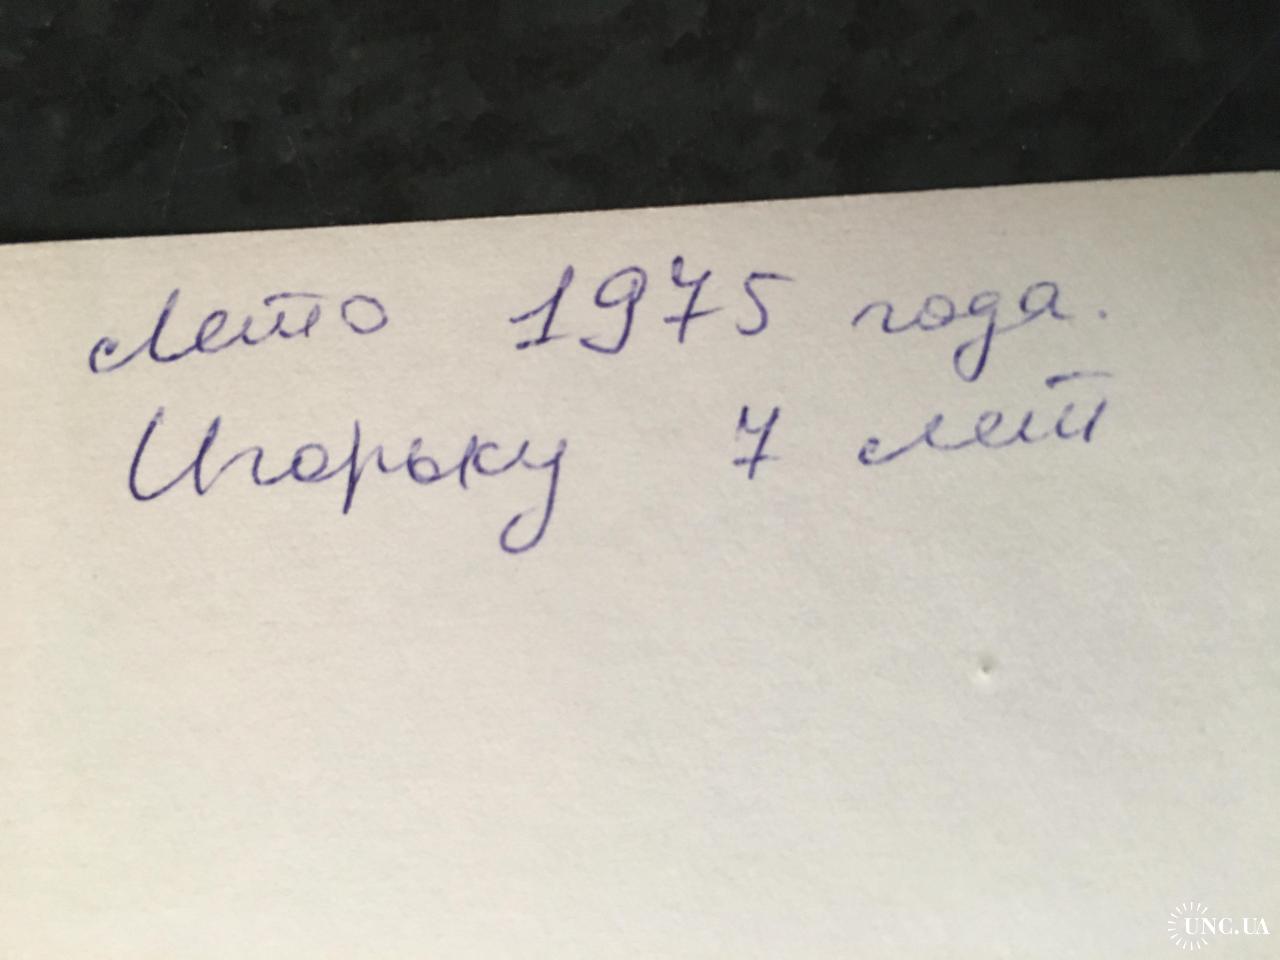 Лето 1975 года.
Игорьку 7 лет
UNC.UA